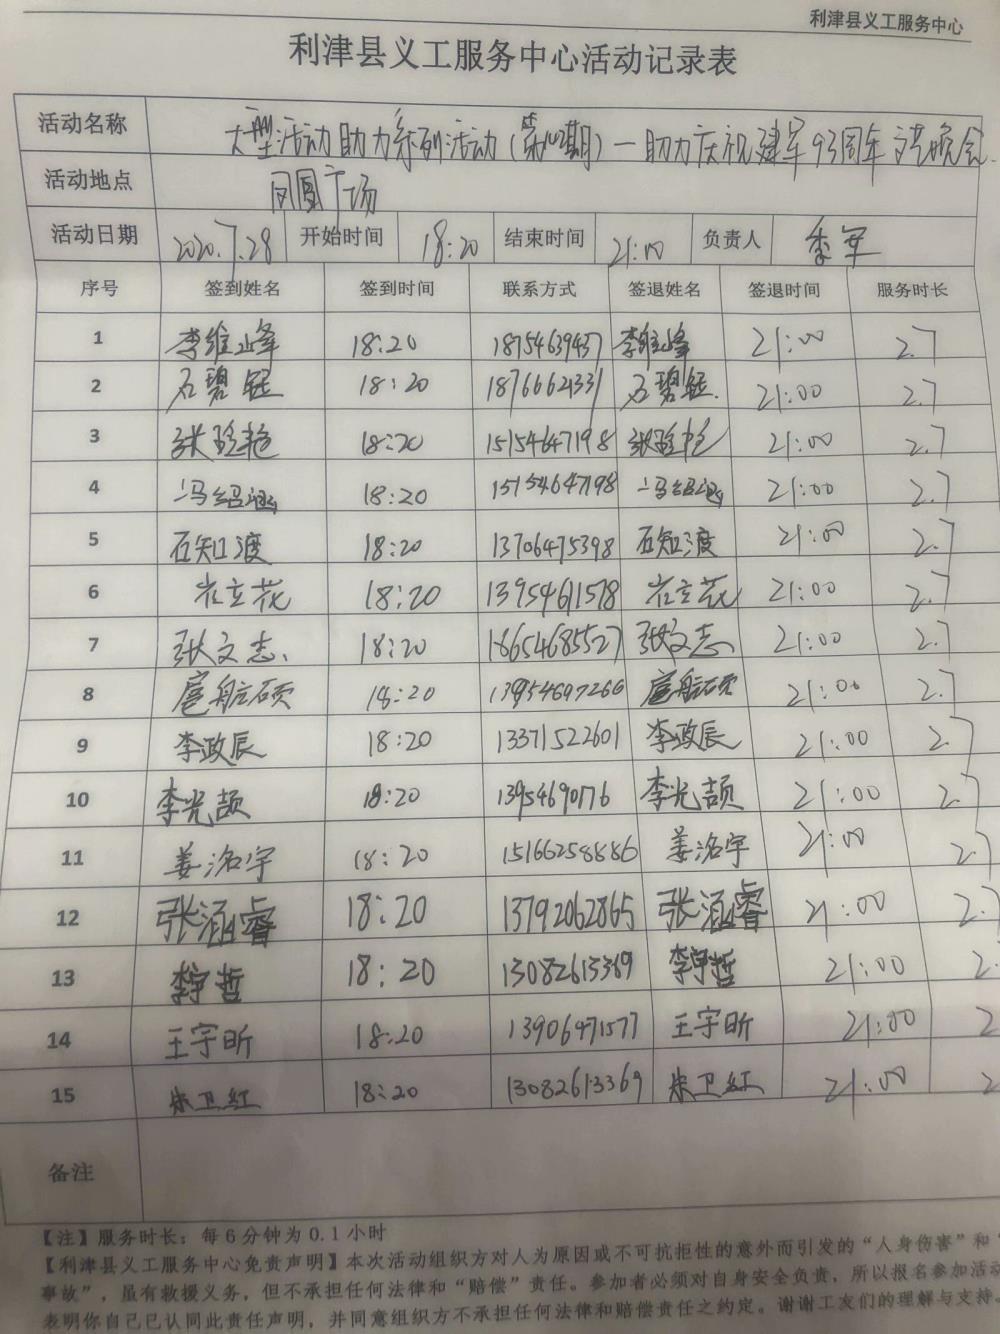 利津县义工服务中心
利津县义工服务中心活动记录表
活动名称 大型活动助力系列活动(第 期)一助力庆祝建军93周年 晚会
活动地点 凤凰广场
活动日期 2020.7.28 开始时间 18:20 结束时间 21:00 负责人 季军
序号 签到姓名 签到时间 联系方式 签退姓名 签退时间 服务时长
1 李维峰 18:20 18754639437 李维峰 21:00 2.7
2 石碧钰 18:20 18766621331 石碧钰 21:00 2.7
3 张 艳 18:20 15154647198 张 艳 21:00 2.7
4 冯绍涵 18:20 15154647198 冯绍涵 21:00 2.7
5 石知渡 18:20 13706475398 石知渡 21:00 2.7
6 崔立花 18:20 13954611578 崔立花 21:00 2.7
7 张文志 18:20 18654685527 张文志 21:00 2.7
8 扈航硕 18:20 13954697266 扈航硕 21:00 2.7
9 李政辰 18:20 13371522601 李政辰 21:00 2.7
10 李光颉 18:20 13954690776 李光颉 21:00 2.7
11 姜洺宇 18:20 15166258886 姜洺宇 21:00 2.7
12 张涵睿 18:20 13792062865 张涵睿 21:00 2.7
13 李宇哲 18:20 13082613369 李宇哲 21:00 2.
14 王宇昕 18:20 13906471577 王宇昕 21:00 2
15 朱卫红 18:20 13082613369 朱卫红 21:00 2
备注
【注】服务时长：每6分钟为0.1小时
【利津县义工服务中心免责声明】本次活动组织方对人为原因或不可抗拒性的意外而引发的“人身伤害”和“
事故”，虽有救援义务，但不承担任何法律和“赔偿”责任。参加者必须对自身安全负责，所以报名参加活动
表明你自己已认同此责任声明，并同意组织方不承担任何法律和赔偿责任之约定。谢谢工友们的理解与支持。